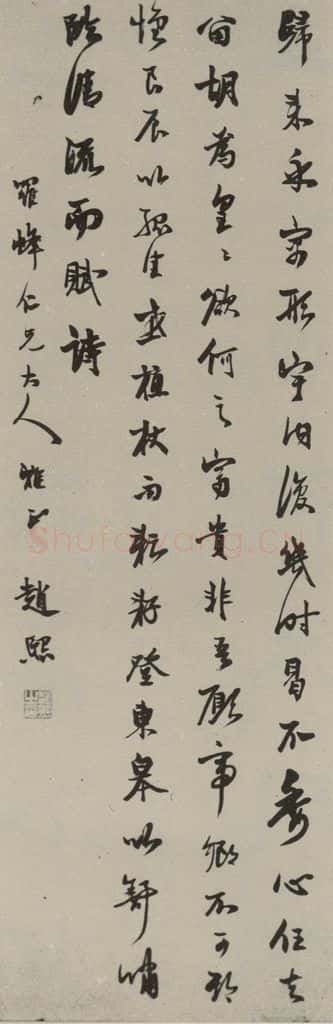 歸来寓形宇内復幾时曷不委心任去
留胡為皇々欲何之富貴非吾願帝鄉不可期
懷良辰以孤往或植杖而耘耔登東皋以舒嘯
臨清流而賦詩
羅峰仁兄大人雅正 趙熙
Shufawang.cn